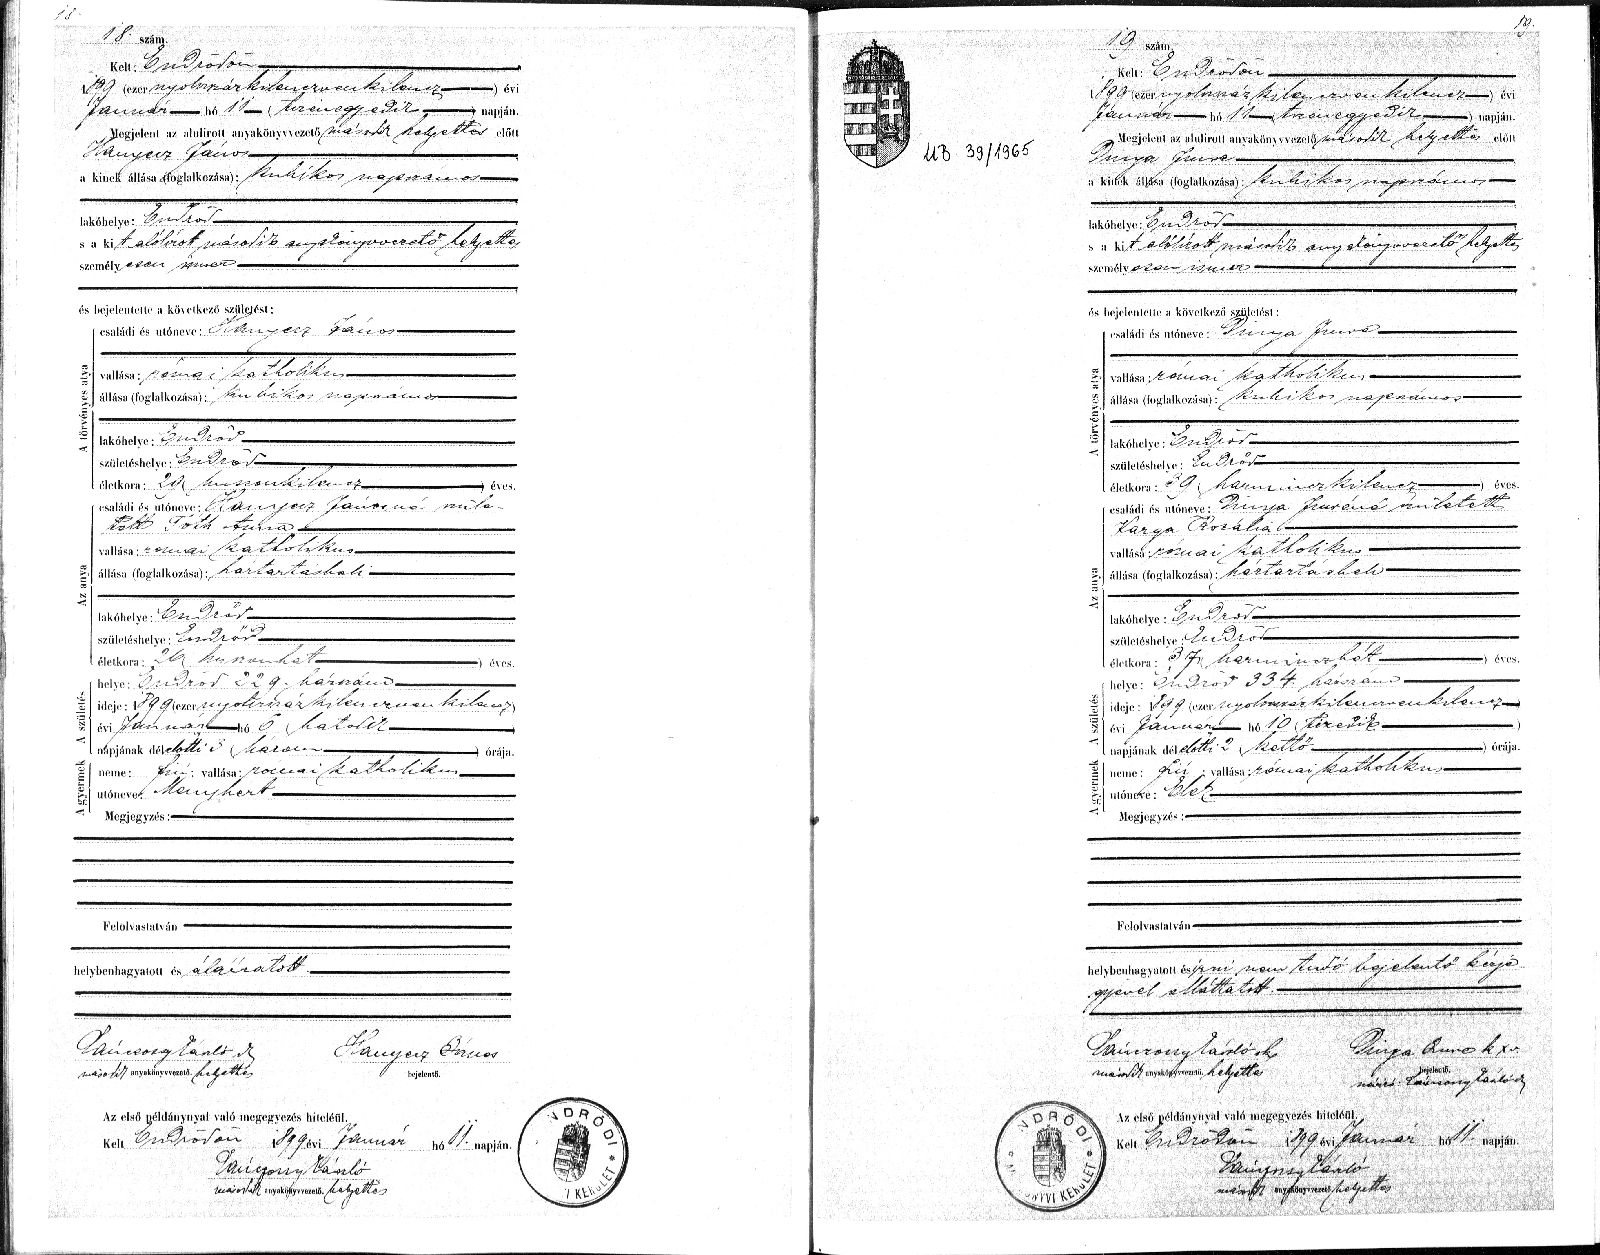 18.
18. szám.
Kelt: Endrődön
1899 (ezer nyolczszázkilenczvenkilencz) évi
Január hó 11 (tizenegyedik) napján.
Megjelent az alulirott anyakönyvvezető második helyettes előtt
Hanyecz János
a kinek állása (foglalkozása): kubikos napszámos
lakóhelye: Endrőd
s a kit alólirott második anyakönyvvezető helyettes
személyesen ismer
és bejelentette a következő születést:
A törvényes atya
családi és utóneve: Hanyecz János
vallása: római katholikus
állása (foglalkozása): kubikos napszámos
lakóhelye: Endrőd
születéshelye: Endrőd
életkora: 29 (huszonkilencz) éves.
Az anya
családi és utóneve: Hanyecz Jánosné szüle-
tett Tóth Anna
vallása: római katholikus
állása (foglalkozása): háztartásbeli
lakóhelye: Endrőd
születéshelye: Endrőd
életkora: 26 (huszonhat) éves.
A születés
helye: Endrőd 229. házszám
ideje: 1899 (ezer nyolczszázkilenczvenkilencz)
évi Január hó 6 (hatodik
napjának délelőtti 3 (három) órája.
A gyermek
neme: fiú; vallása: római katholikus
utóneve: Menyhert
Megjegyzés:
Felolvastatván
helybenhagyatott és aláíratott.
László
második anyakönyvvezető. helyettes
Hanyecz János
bejelentő.
Az első példánynyal való megegyezés hiteléül.
Kelt Endrődön 1899 évi Január hó 11. napján.
László
második anyakönyvvezető. helyettes
NDRŐDI
I KERÜLET *
19.
UB. 39/1965
19 szám.
Kelt: Endrődön
1899 (ezer nyolczszázkilenczvenkilencz) évi
Január hó 11 (tizenegyedik) napján.
Megjelent az alulirott anyakönyvvezető második helyettes előtt
Dinya Imre
a kinek állása (foglalkozása): kubikos napszámos
lakóhelye: Endrőd
s a kit alólirott második anyakönyvvezető helyettes
személyesen ismer
és bejelentette a következő születést:
A törvényes atya
családi és utóneve: Dinya Imre
vallása: római katholikus
állása (foglalkozása): kubikos napszámos
lakóhelye: Endrőd
születéshelye: Endrőd
életkora: 39 (harminczkilencz) éves.
Az anya
családi és utóneve: Dinya Imréné született
Varga Rozália
vallása: római katholikus
állása (foglalkozása): háztartásbeli
lakóhelye: Endrőd
születéshelye: Endrőd
életkora: 37 (harminczhét) éves.
A születés
helye: Endrőd 334. házszám
ideje: 1899 (ezer nyolczszázkilenczvenkilencz)
évi Január hó 10 (tizedik)
napjának délelőtti 2 (kettő) órája.
A gyermek
neme: fiú; vallása: római katholikus
utóneve: Elek
Megjegyzés:
Felolvastatván
helybenhagyatott és írni nem tudó bejelentő kézje-
gyével elláttatott.
László
második anyakönyvvezető. helyettes
Dinya Imre k x v.
bejelentő.
László
Az első példánynyal való megegyezés hiteléül.
Kelt Endrődön 1899 évi Január hó 11. napján.
László
második anyakönyvvezető. helyettes
NDRŐDI
NYVI KERÜLET *